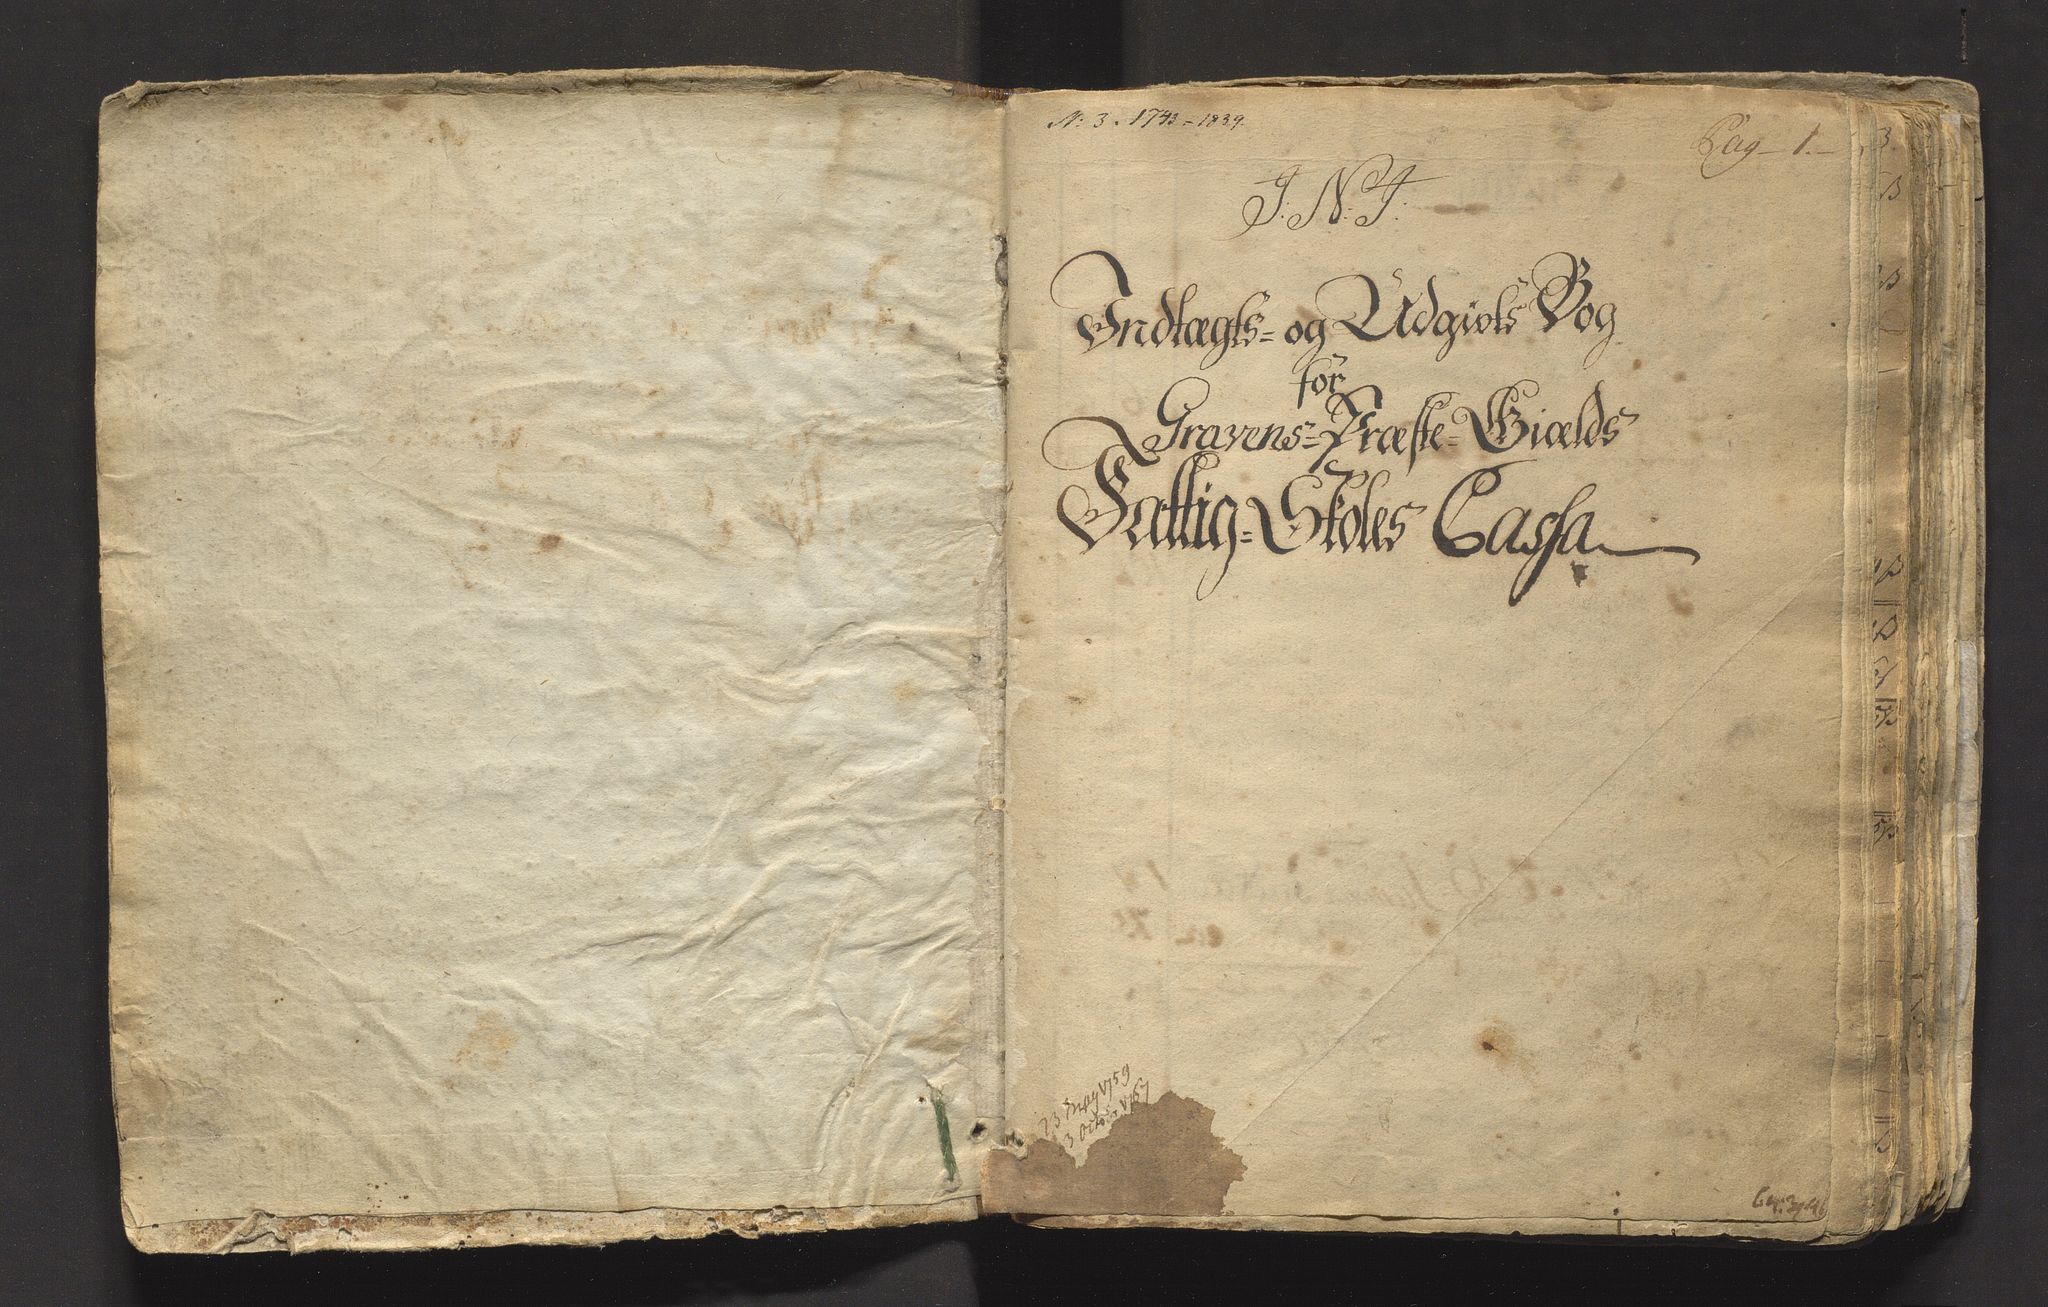 N: 3. 1743-1839.
Pag- 1.-
J. N. J.
Indtægts- og Udgivts Bog
for
Gravens-Præste-Giælds
Fattig-Skoles Cassa
23 May 1759
3 Octobr 1757